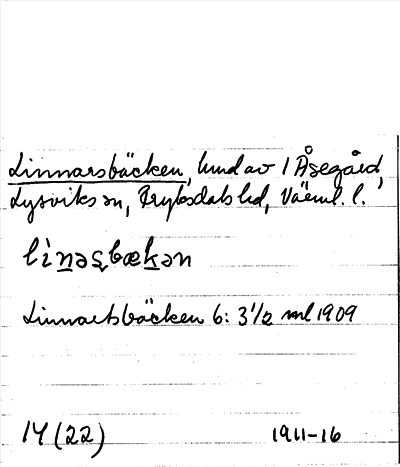 Linnarsbäcken, lund av 1 Åsegård,
Lysviks sn, Fryksdals hd, Värml. l.
linəsbækən
Linnartsbäcken 6: 3 1/2 ml 1909
14 (22) 1911-16